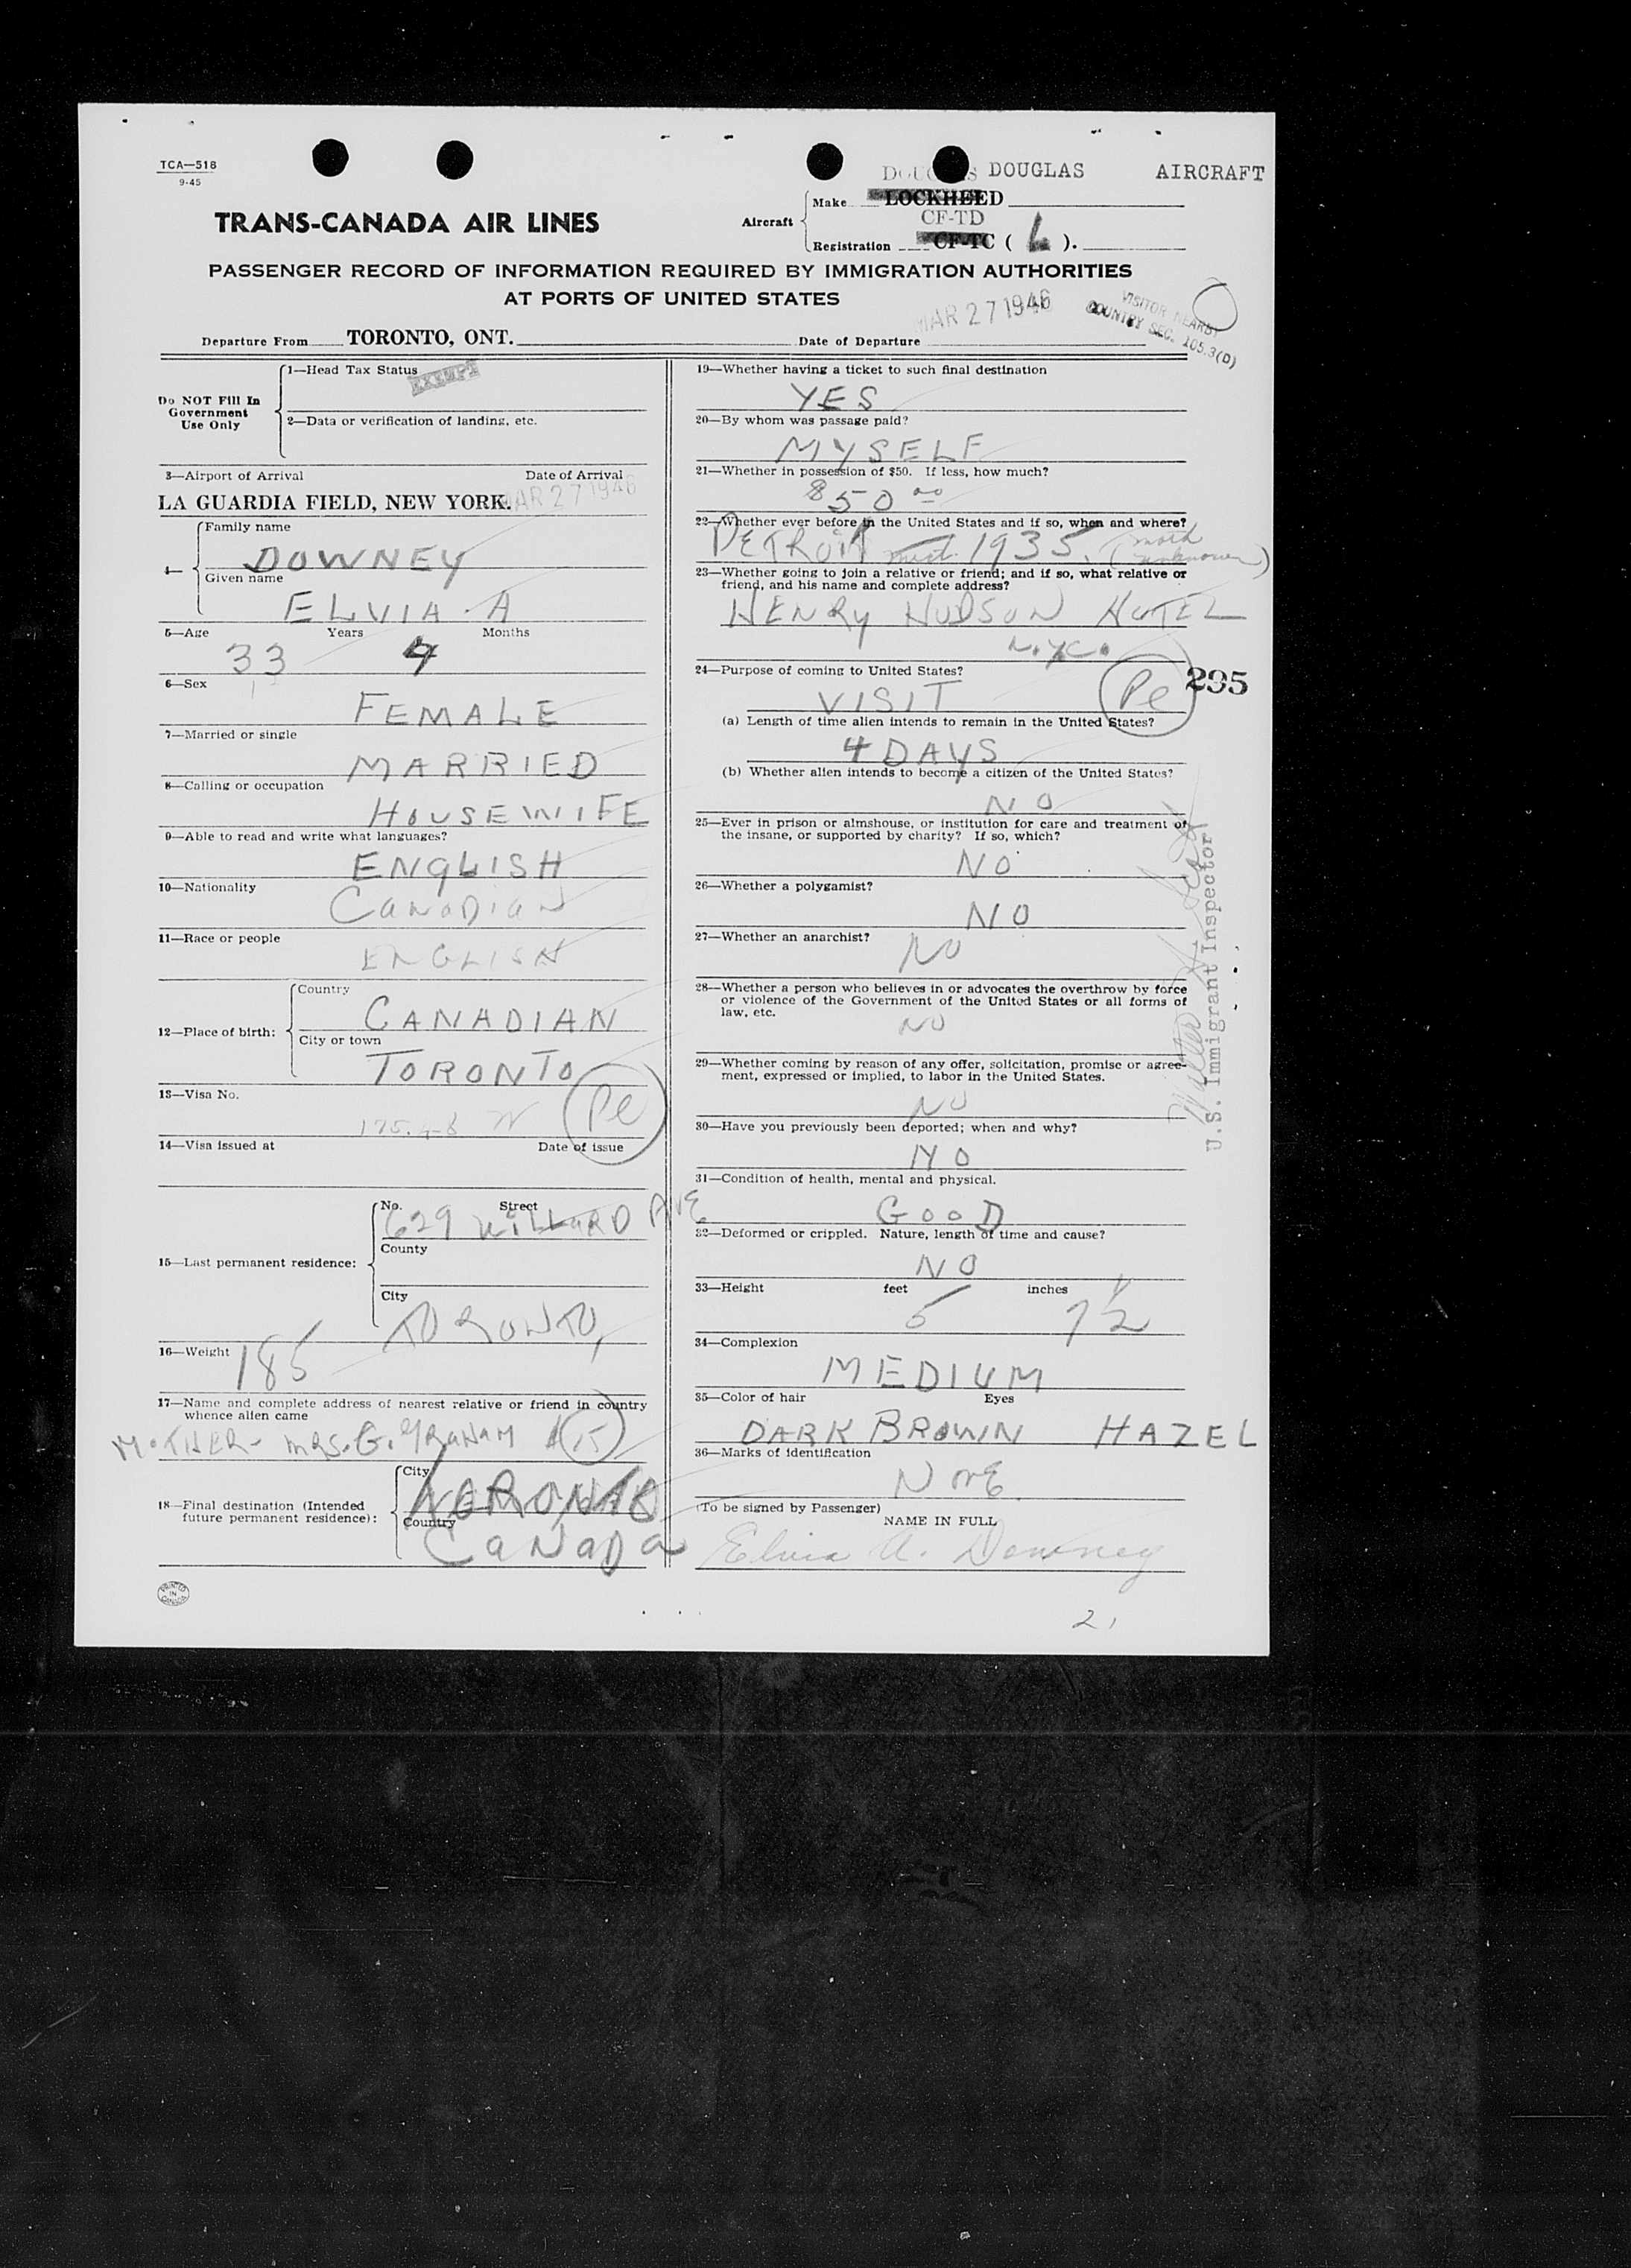 TCA—518
9-45
DOUGLAS AIRCRAFT
TRANS-CANADA AIR LINES
Aircraft
Make LOCKHEED
CF-TD
Registration CF-TC ( L ).
PASSENGER RECORD OF INFORMATION REQUIRED BY IMMIGRATION AUTHORITIES
AT PORTS OF UNITED STATES
MAR 27 1946
VISITOR NEARBY
COUNTRY SEC. 105.3(D)
Departure From TORONTO, ONT. Date of Departure
Do NOT Fill In
Government
Use Only
1—Head Tax Status
EXEMPT
2—Data or verification of landing, etc.
3—Airport of Arrival Date of Arrival
LA GUARDIA FIELD, NEW YORK. MAR 27 1946
4—
Family name
DOWNEY
Given name
ELVIA A
5—Age Years Months
33 4
6—Sex
FEMALE
7—Married or single
MARRIED
8—Calling or occupation
HOUSEWIFE
9—Able to read and write what languages?
ENGLISH
10—Nationality
CANADIAN
11—Race or people
ENGLISH
12—Place of birth:
Country
CANADIAN
City or town
TORONTO
13—Visa No.
Pe
14—Visa issued at Date of issue
15—Last permanent residence:
No. Street
629 WILLARD AVE
County
City
TORONTO,
16—Weight
185
17—Name and complete address of nearest relative or friend in country
whence alien came
MOTHER- MRS. G. GRAHAM (15)
18—Final destination (Intended
future permanent residence):
City
TORONTO
Country
CANADA
PRINTED
IN
CANADA
19—Whether having a ticket to such final destination
YES
20—By whom was passage paid?
MYSELF
21—Whether in possession of $50. If less, how much?
$50 00
22—Whether ever before in the United States and if so, when and where?
DETROIT 1935. (month unknown)
23—Whether going to join a relative or friend; and if so, what relative or
friend, and his name and complete address?
HENRY HUDSON HOTEL
N.Y.C.
24—Purpose of coming to United States?
VISIT
Pe
295
(a) Length of time alien intends to remain in the United States?
4 DAYS
(b) Whether alien intends to become a citizen of the United States?
NO
25—Ever in prison or almshouse, or institution for care and treatment of
the insane, or supported by charity? If so, which?
NO
26—Whether a polygamist?
NO
27—Whether an anarchist?
NO
28—Whether a person who believes in or advocates the overthrow by force
or violence of the Government of the United States or all forms of
law, etc.
NO
29—Whether coming by reason of any offer, solicitation, promise or agree-
ment, expressed or implied, to labor in the United States.
NO
30—Have you previously been deported; when and why?
NO
31—Condition of health, mental and physical.
GOOD
32—Deformed or crippled. Nature, length of time and cause?
NO
33—Height feet inches
5 7½
34—Complexion
MEDIUM
35—Color of hair Eyes
DARK BROWN HAZEL
36—Marks of identification
NONE
(To be signed by Passenger)
NAME IN FULL
Elvia A. Downey
21
U.S. Immigrant Inspector